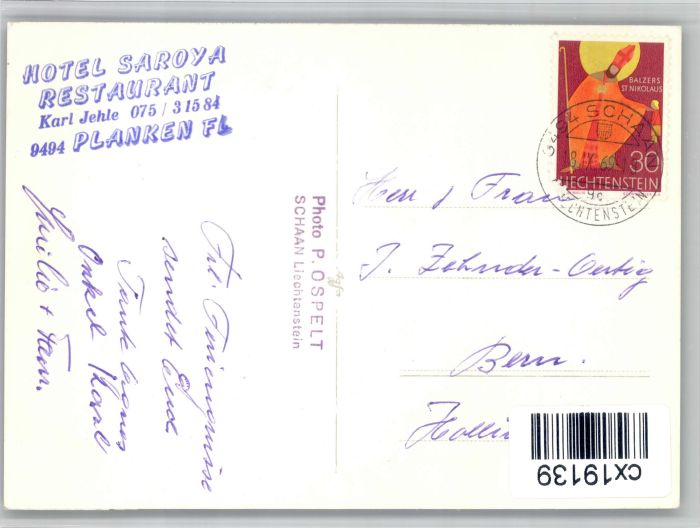 HOTEL SAROYA
RESTAURANT
Karl Jehle 075 / 3 15 84
9494 PLANKEN FL
Frl. Feriengrüsse
sendet Euch
Tante Agnes
Onkel Karl
+ Fam.
Photo P. OSPELT
SCHAAN Liechtenstein
Agfa
BALZERS
ST NIKOLAUS
30
LIECHTENSTEIN
9494 SCHAAN
69
LIECHTENSTEIN
Herr & Frau
J. Zehnder-Oertig
Bern.
cx19139